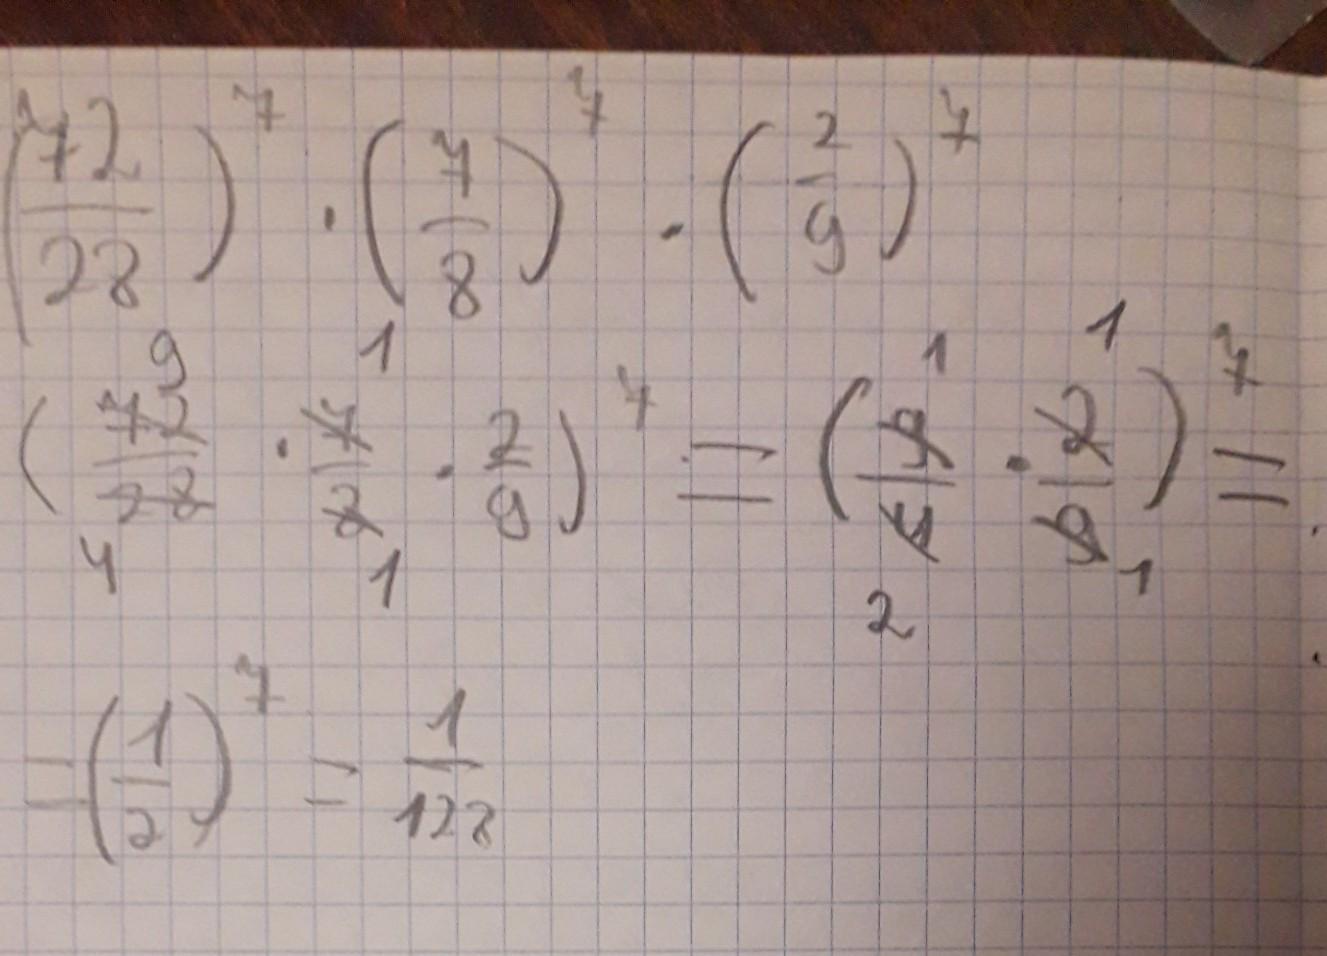 (72/28)^7 · (7/8)^7 · (2/9)^7
9 1 1 1
(72/28 · 7/8 · 2/9)^7 = (9/4 · 2/9)^7 =
4 1 2 1
= (1/2)^7 = 1/128